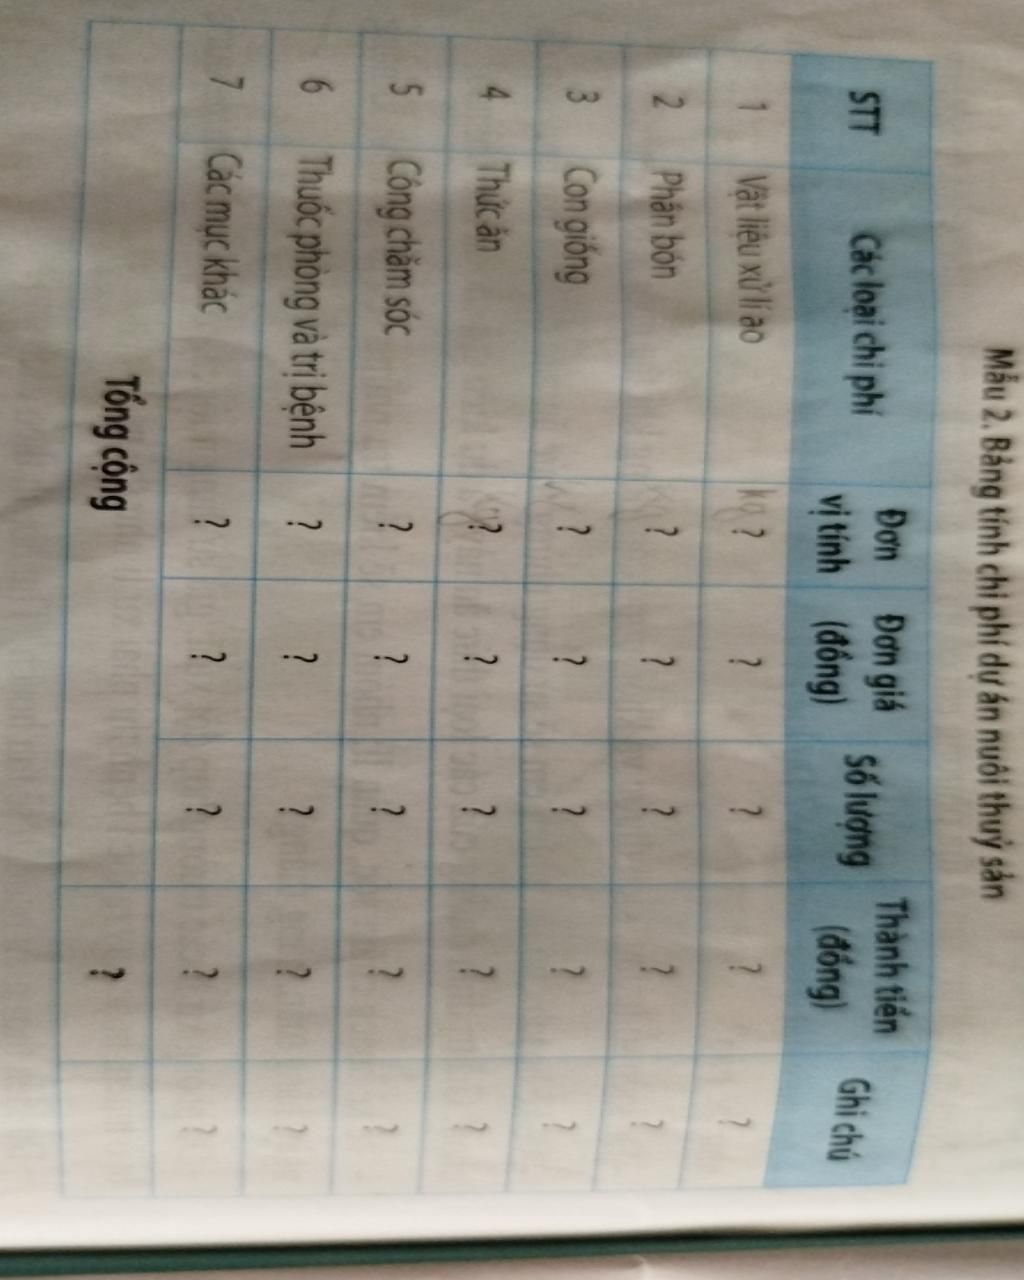 Mẫu 2. Bảng tính chi phí dự án nuôi thuỷ sản
STT Các loại chi phí Đơn vị tính Đơn giá (đồng) Số lượng Thành tiền (đồng) Ghi chú
1 Vật liệu xử lí ao kg ? ? ? ? ?
2 Phân bón ? ? ? ? ?
3 Con giống ? ? ? ? ?
4 Thức ăn ? ? ? ? ?
5 Công chăm sóc ? ? ? ? ?
6 Thuốc phòng và trị bệnh ? ? ? ? ?
7 Các mục khác ? ? ? ? ?
Tổng cộng ?